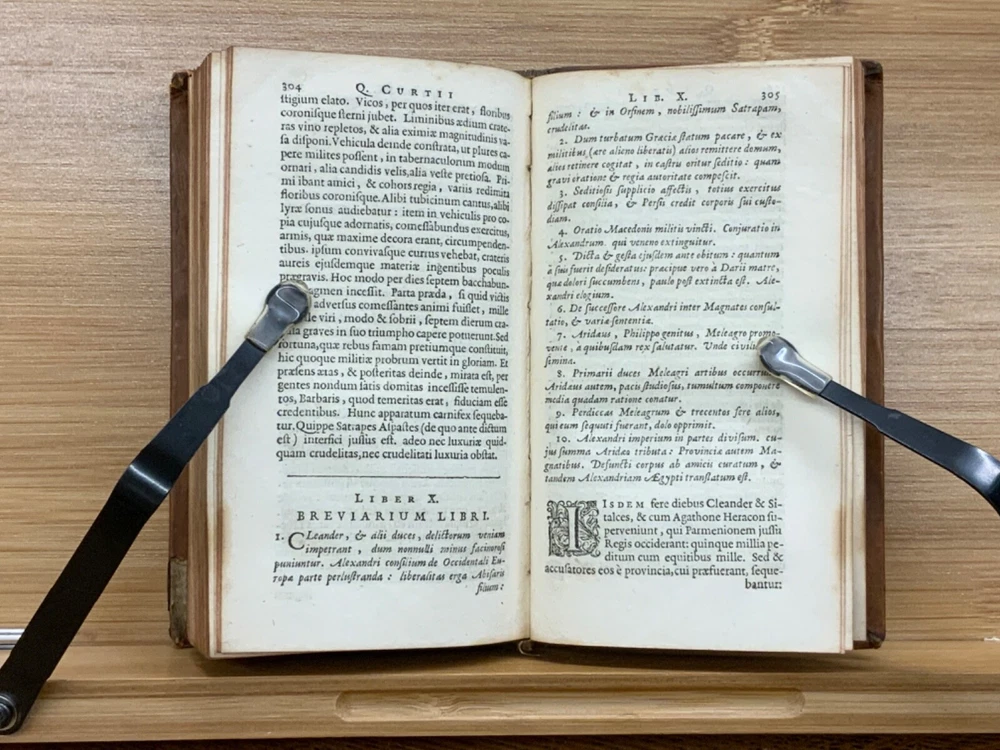 304 Q. CURTII
ſtigium elato. Vicos, per quos iter erat, floribus
coroniſque ſterni jubet. Liminibus ædium crate-
ras vino repletos, & alia eximiæ magnitudinis va-
ſa diſponi. Vehicula deinde conſtrata, ut plures ca-
pere milites poſſent, in tabernaculorum modum
ornari, alia candidis velis, alia veſte pretioſa. Pri-
mi ibant amici, & cohors regia, variis redimita
floribus coroniſque. Alibi tubicinum cantus, alibi
lyræ ſonus audiebatur: item in vehiculis pro co-
pia cujuſque adornatis, comeſſabundus exercitus,
armis, quæ maxime decora erant, circumpenden-
tibus. ipſum convivaſque currus vehebat, crateris
aureis ejuſdemque materiæ ingentibus poculis
prægravis. Hoc modo per dies ſeptem bacchabun-
agmen inceſſit. Parta præda, ſi quid victis
adverſus comeſſantes animi fuiſſet, mille
le viri, modo & ſobrii, ſeptem dierum cra-
graves in ſuo triumpho capere potuerunt. Sed
fortuna, quæ rebus famam pretiumque conſtituit,
hic quoque militiæ probrum vertit in gloriam. Et
præſens ætas, & poſteritas deinde, mirata eſt, per
gentes nondum ſatis domitas inceſſiſſe temulen-
tos, Barbaris, quod temeritas erat, fiduciam eſſe
credentibus. Hunc apparatum carnifex ſequeba-
tur. Quippe Satrapes Aſpaſtes (de quo ante dictum
eſt) interfici juſſus eſt. adeo nec luxuriæ quid-
quam crudelitas, nec crudelitati luxuria obſtat.
LIBER X.
BREVIARIUM LIBRI.
1. Cleander, & alii duces, delictorum veniam
impetrant, dum nonnulli minus facinoroſi
puniuntur. Alexandri conſilium de Occidentali Eu-
ropæ parte perluſtranda: liberalitas erga Abiſaris
filium:
LIB. X. 305
filium: & in Orſinem, nobiliſſimum Satrapam,
crudelitas.
2. Dum turbatum Græciæ ſtatum pacare, & ex
militibus (ære alieno liberatis) alios remittere domum,
alios retinere cogitat, in caſtris oritur ſeditio: quam
gravi oratione & regia autoritate compeſcit.
3. Seditioſis ſupplicio affectis, totius exercitus
diſſipat conſilia, & Perſis credit corporis ſui cuſto-
diam.
4. Oratio Macedonis militis vincti. Conjuratio in
Alexandrum. qui veneno extinguitur.
5. Dicta & geſta ejuſdem ante obitum: quantum
a ſuis fuerit deſideratus: præcipue vero à Darii matre,
quæ dolori ſuccumbens, paulo poſt extincta eſt. Ale-
xandri elogium.
6. De ſucceſſore Alexandri inter Magnates conſul-
tatio, & variæ ſententiæ.
7. Aridæus, Philippo genitus, Meleagro promo-
vente, à quibuſdam rex ſalutatur. Unde civilis
ſemina.
8. Primarii duces Meleagri artibus occurrunt
Aridæus autem, pacis ſtudioſus, tumultum componere
media quadam ratione conatur.
9. Perdiccas Meleagrum & trecentos fere alios,
qui eum ſequuti fuerant, dolo opprimit.
10. Alexandri imperium in partes diviſum. cu-
jus ſumma Aridæo tributa: Provinciæ autem Ma-
gnatibus. Defuncti corpus ab amicis curatum, &
tandem Alexandriam Ægypti tranſlatum eſt.
IISDEM fere diebus Cleander & Si-
talces, & cum Agathone Heracon ſu-
perveniunt, qui Parmenionem juſſu
Regis occiderant: quinque millia pe-
ditum cum equitibus mille. Sed &
accuſatores eos è provincia, cui præfuerant, ſeque-
bantur: